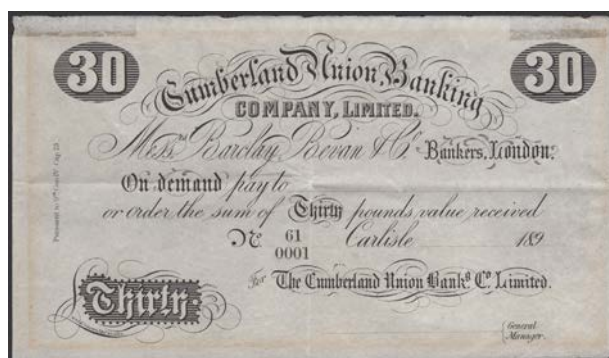 30 30
Cumberland Union Banking
COMPANY, LIMITED.
Mess.rs Barclay Bevan & Co. Bankers, London.
On demand pay to
or order the sum of Thirty pounds value received
No. 61
0001 Carlisle 189
Thirty
For The Cumberland Union Bankg. Co. Limited.
General
Manager.